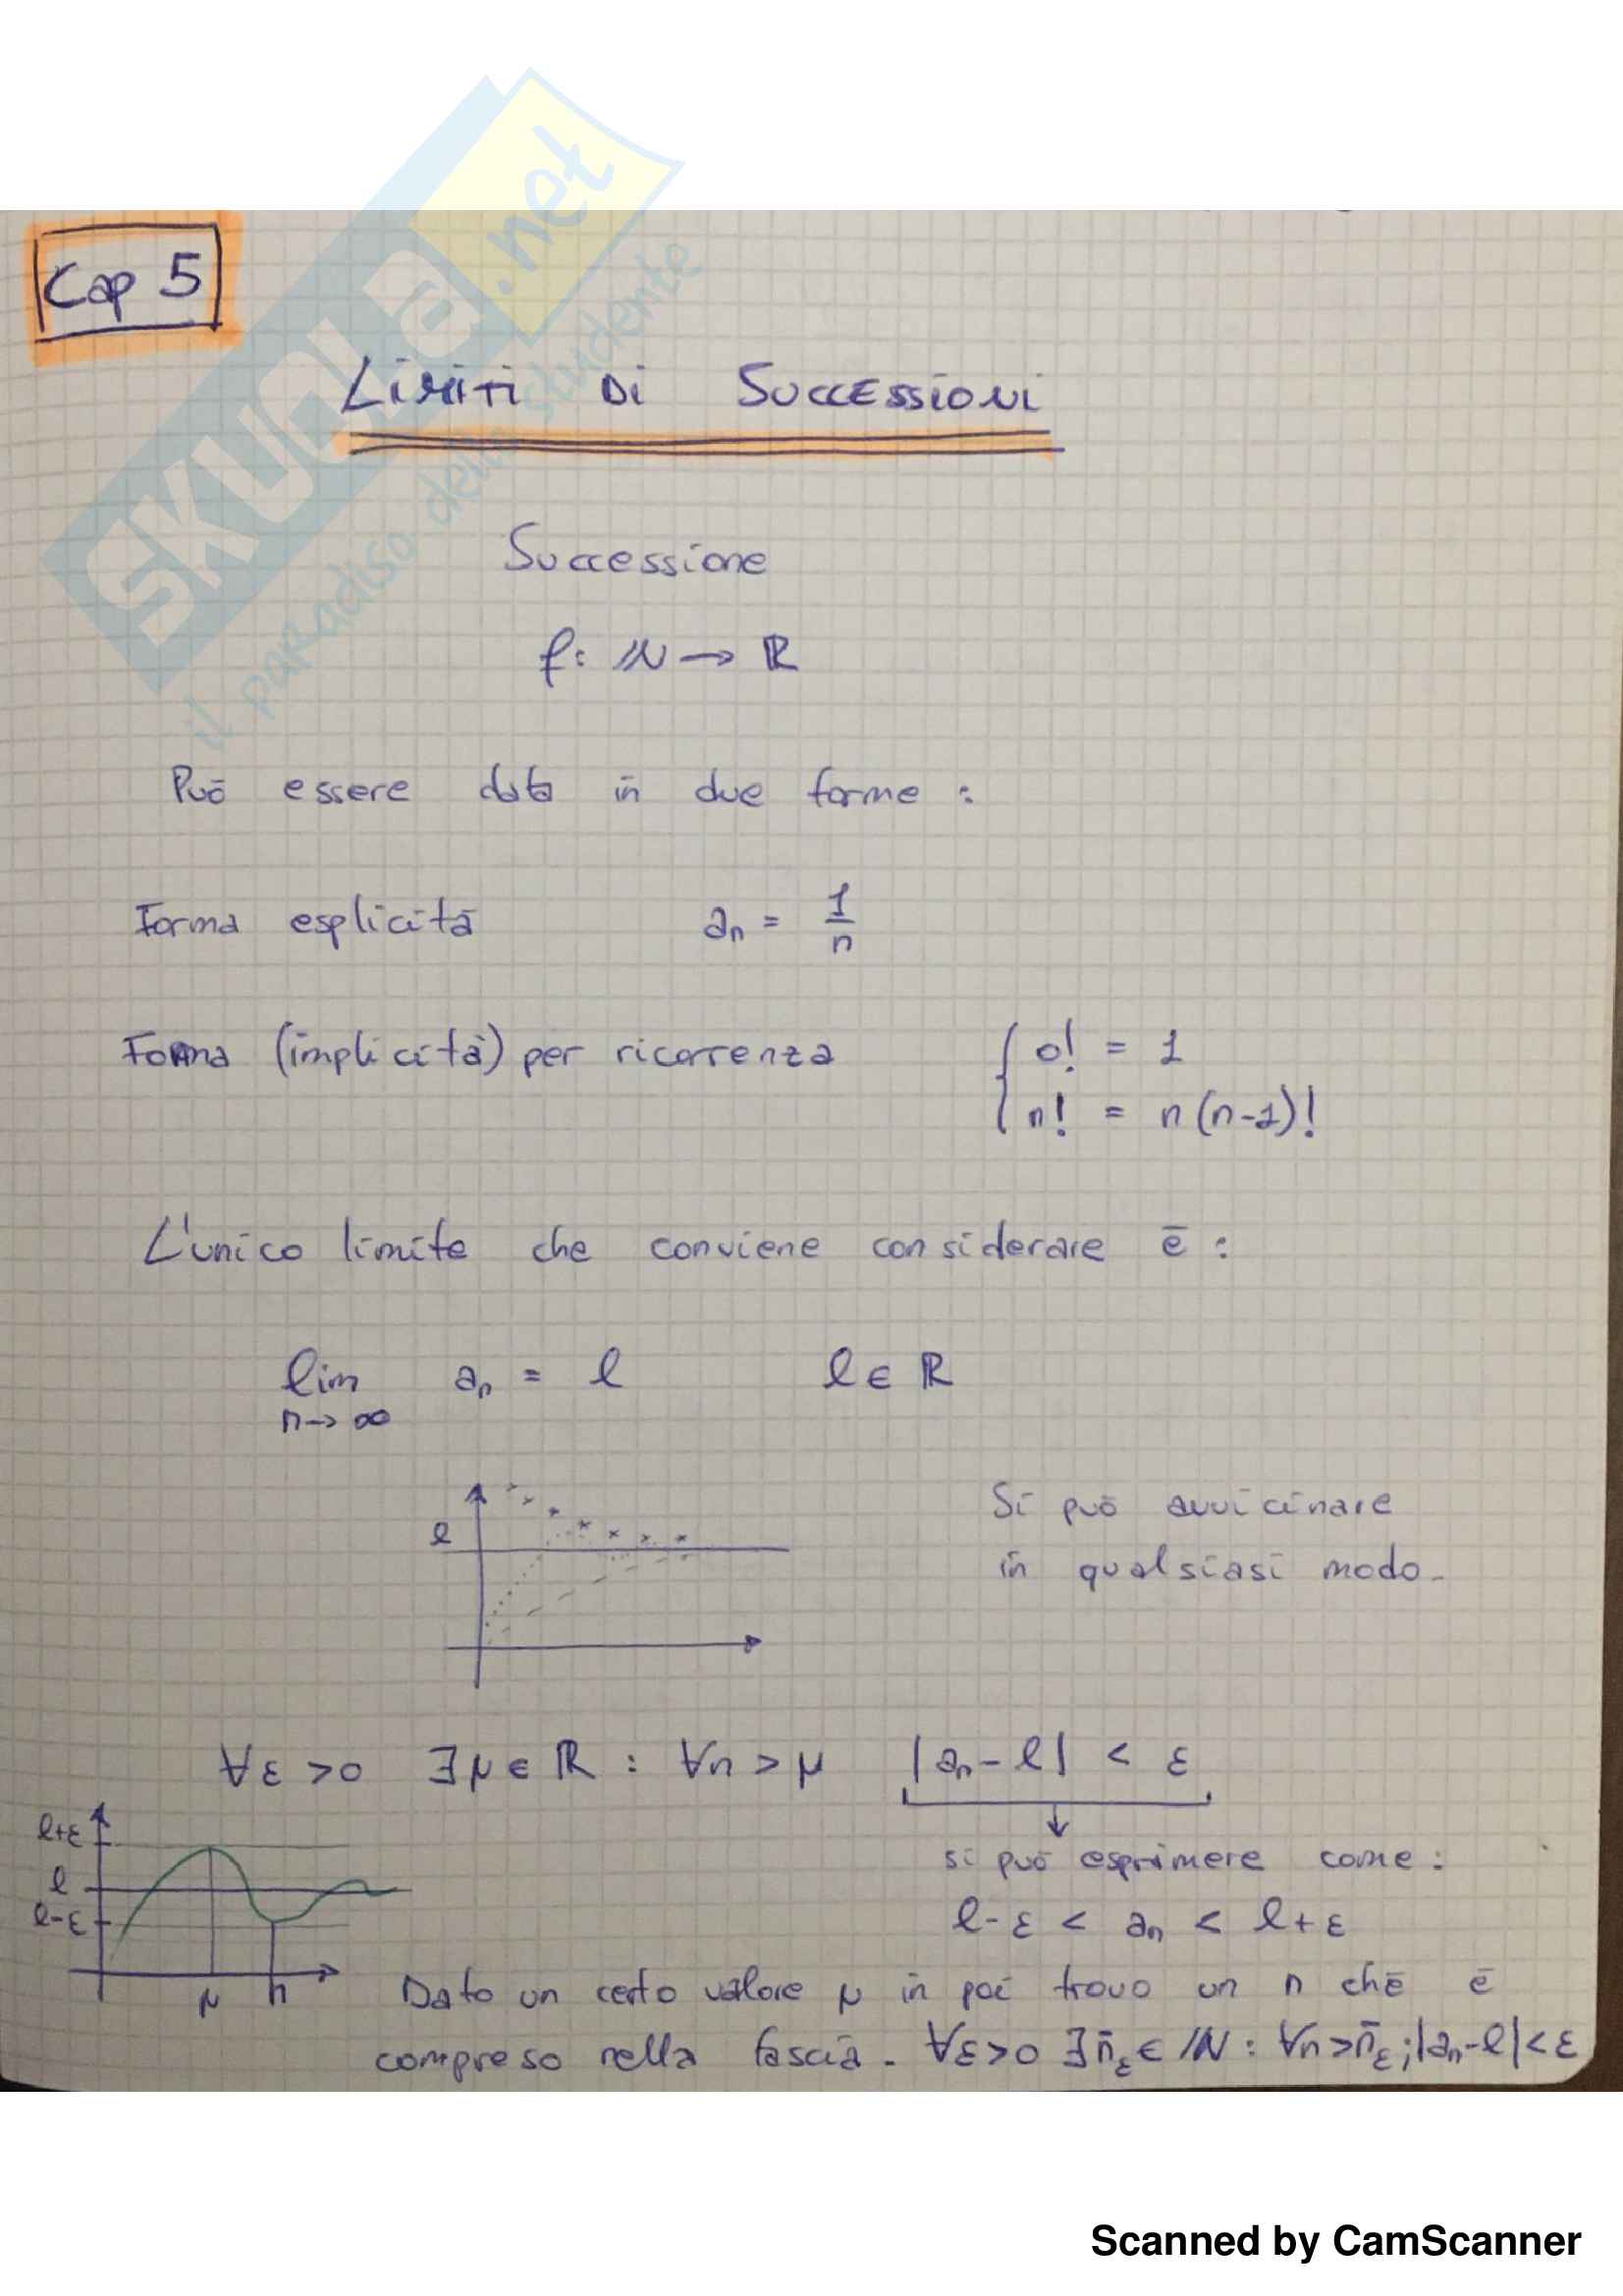 Cap 5
Limiti Di Successioni
Successione
f: ℕ → ℝ
Può essere data in due forme :
Forma esplicità aₙ = 1/n
Forma (implicità) per ricorrenza { 0! = 1
n! = n(n-1)!
L'unico limite che conviene considerare è :
lim aₙ = l l ∈ ℝ
n→∞
l
Si può avvicinare
in qualsiasi modo.
∀ε > 0 ∃μ ∈ ℝ : ∀n > μ |aₙ - l| < ε
l+ε
l
l-ε
μ n
si può esprimere come :
l-ε < aₙ < l+ε
Dato un certo valore μ in poi trovo un n chè è
compreso nella fascia. ∀ε>0 ∃n̄_ε ∈ ℕ : ∀n>n̄_ε ; |aₙ-l|<ε
SKUOLA.net
il paradiso dello studente
Scanned by CamScanner